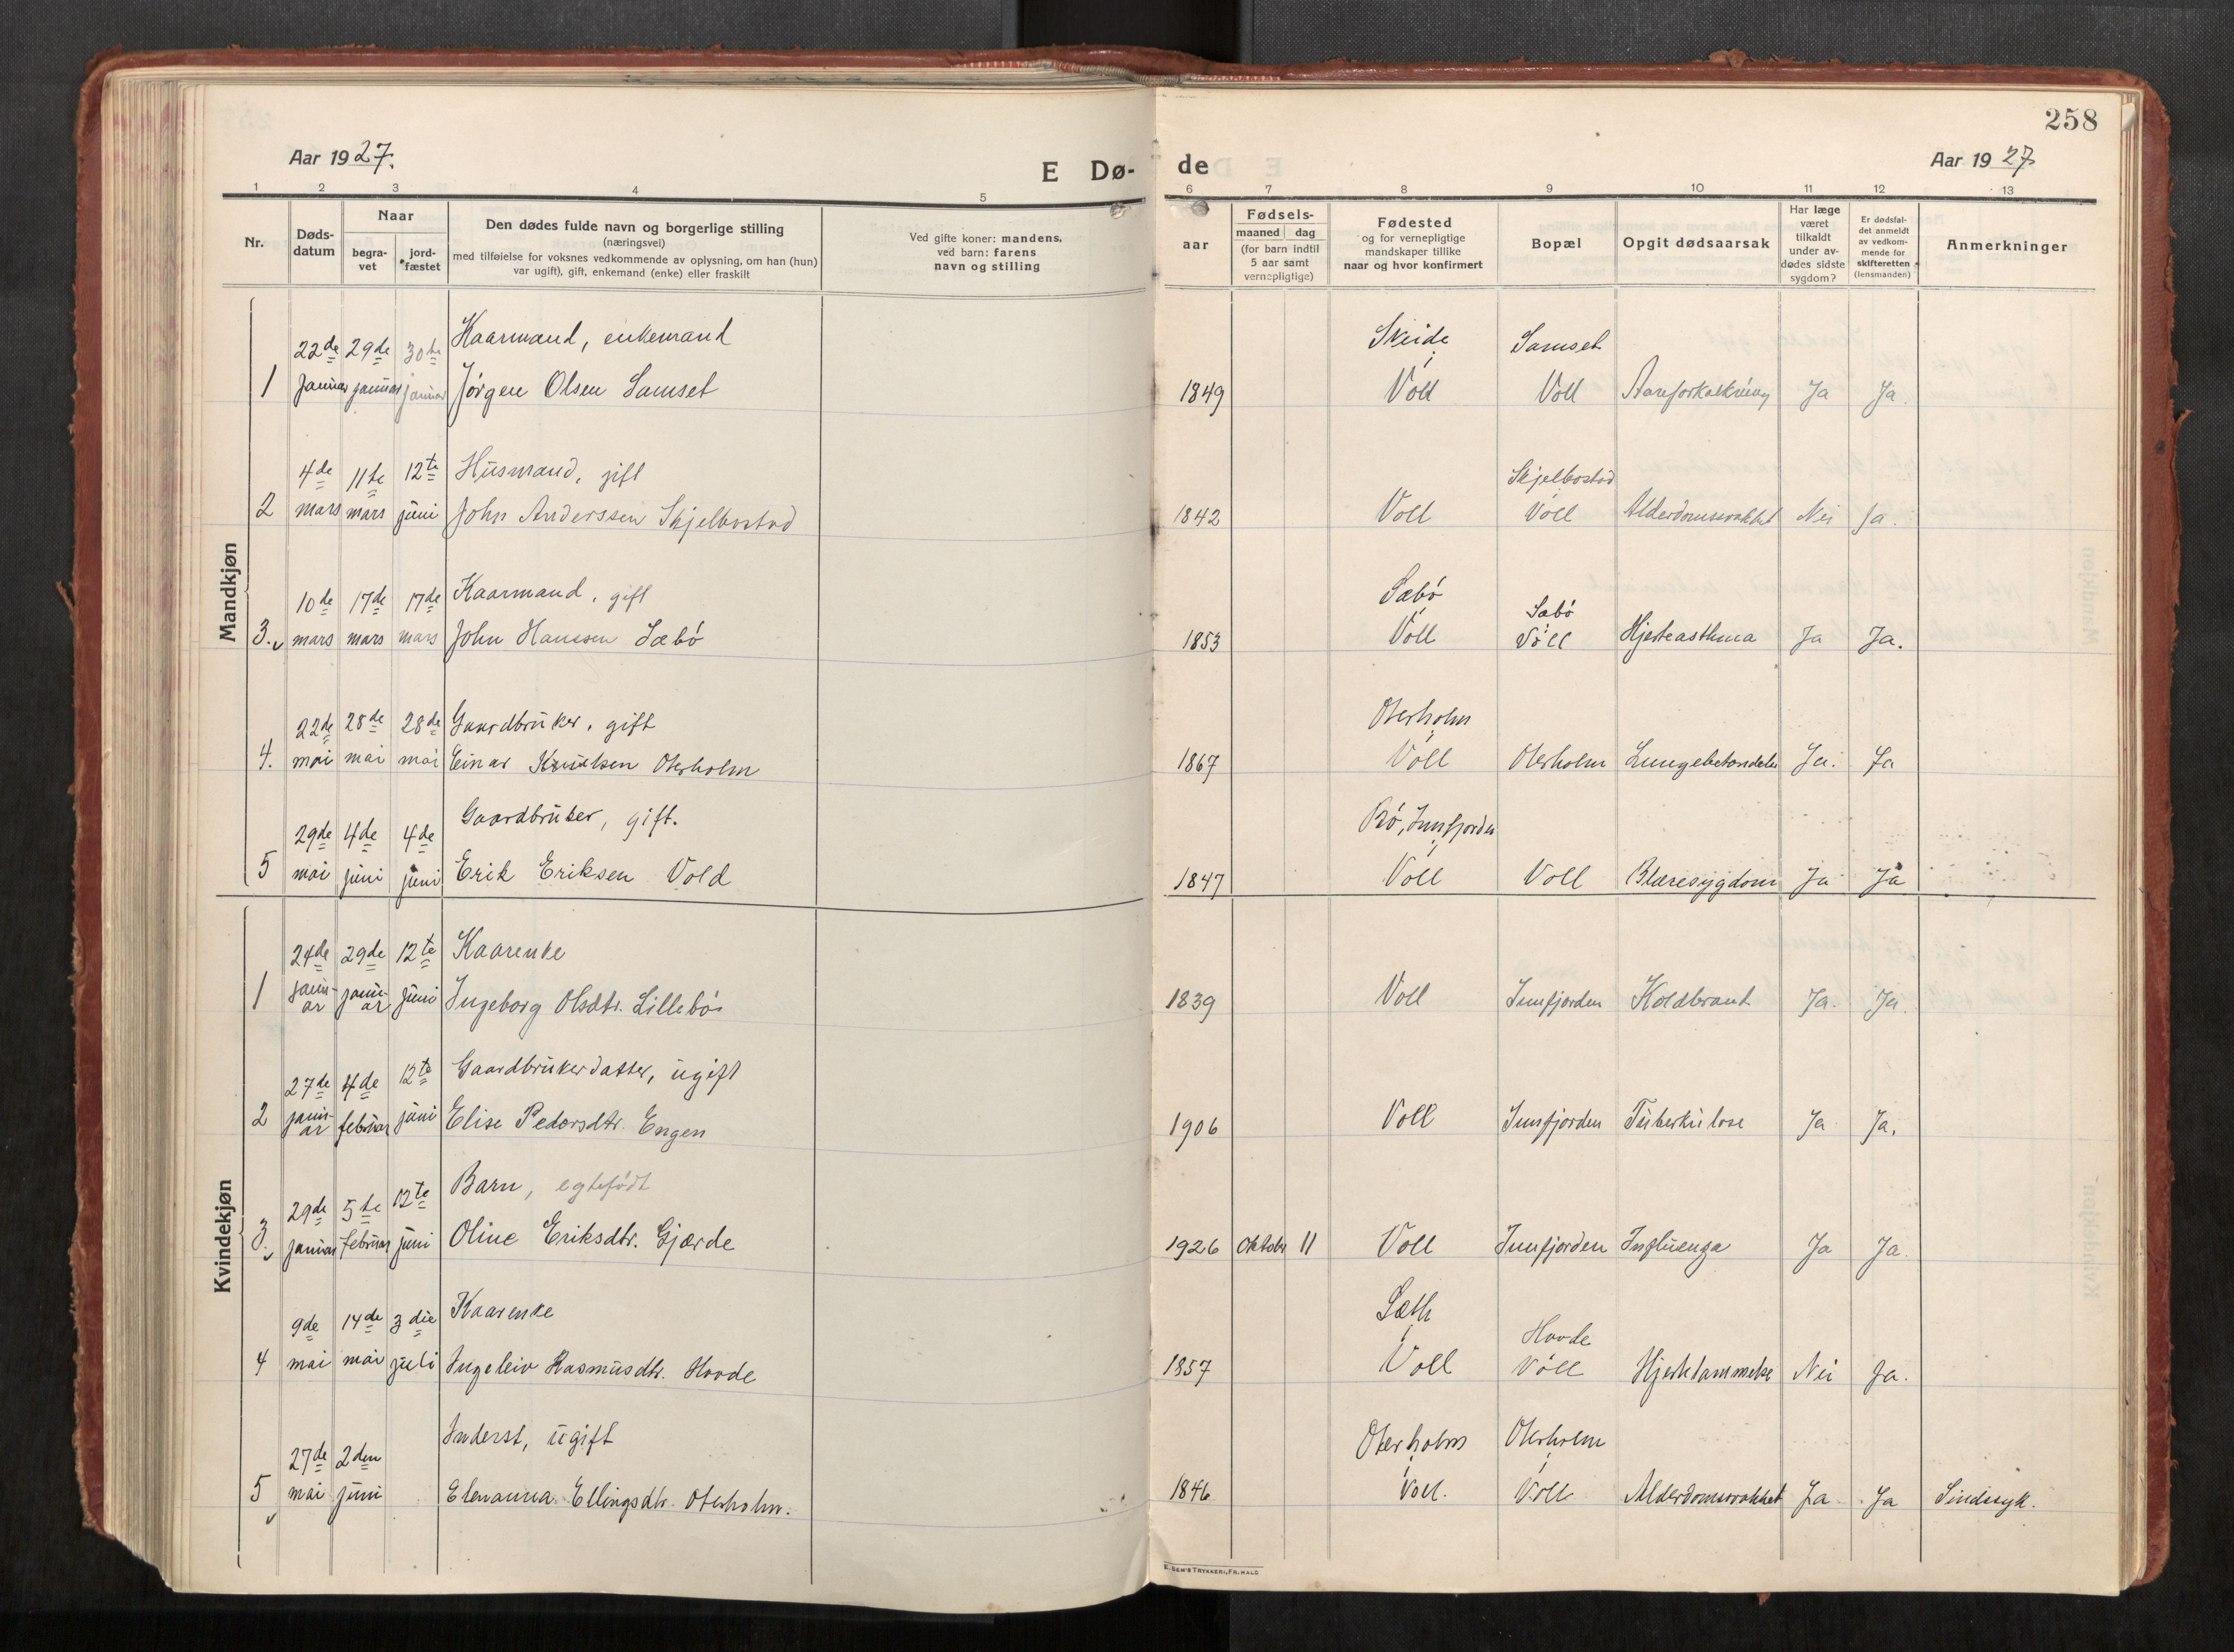 258
Aar 1927.
E Dø-
de
Aar 1927
1 2 3 4 5 6 7 8 9 10 11 12 13
Nr.
Døds-
datum
Naar
begra-
vet
jord-
fæstet
Den dødes fulde navn og borgerlige stilling
(næringsvei)
med tilføielse for voksnes vedkommende av oplysning, om han (hun)
var ugift), gift, enkemand (enke) eller fraskilt
Ved gifte koner: mandens,
ved barn: farens
navn og stilling
aar
Fødsels-
maaned dag
(for barn indtil
5 aar samt
vernepligtige)
Fødested
og for vernepligtige
mandskaper tillike
naar og hvor konfirmert
Bopæl
Opgit dødsaarsak
Har læge
været
tilkaldt
under av-
dødes sidste
sygdom?
Er dødsfal-
det anmeldt
av vedkom-
mende for
skifteretten
(lensmanden)
Anmerkninger
Mandkjøn
22de 29de 30te Kaarmand, enkemand Skeide Samset
1 januar januar januar Jørgen Olsen Samset 1849 Voll Voll Aareforkalkning Ja Ja.
4de 11te 12te Husmand, gift Skjelbostad
2 mars mars juni John Anderssen Skjelbostad 1842 Voll Voll Alderdomssvakhet Nei Ja.
10de 17de 17de Kaarmand, gift Sæbø Sæbø
3. mars mars mars John Hanssen Sæbø 1853 Voll Voll Hjerteasthma Ja Ja.
22de 28de 28de Gaardbruker, gift Oterholm
4. mai mai mai Einar Knutsen Oterholm 1867 Voll Oterholm Lungebetændelse Ja. Ja
29de 4de 4de Gaardbruker, gift. Bø, Innfjorden
5 mai juni juni Erik Eriksen Vold 1847 Voll Voll Blæresygdom Ja Ja
Kvindekjøn
24de 29de 12te Kaarenke
1 janu-ar janu-ar juni Ingeborg Olsdtr. Lillebø 1839 Voll Innfjorden Koldbrant Ja. Ja.
27de 4de 12te Gaardbrukerdatter, ugift
2 janu-ar februar juni Elise Pedersdtr. Engen 1906 Voll Innfjorden Tuberkulose Ja Ja.
29de 5te 12te Barn, egtefødt
3. januar februar juni Oline Eriksdtr. Gjærde 1926 Oktober 11 Voll Innfjorden Influenza Ja Ja.
9de 14de 3die Kaarenke Sæth Hovde
4 mai mai juli Ingeleiv Rasmusdtr. Hovde 1857 Voll Voll Hjertelammelse Nei Ja.
27de 2den Inderst, ugift Oterholm Oterholm
5 mai juni Elenanna Ellingsdtr. Oterholm. 1846 Voll. Voll Alderdomssvakhet Ja Ja Sindssyk.
E. SEM'S TRYKKERI, FR.HALD